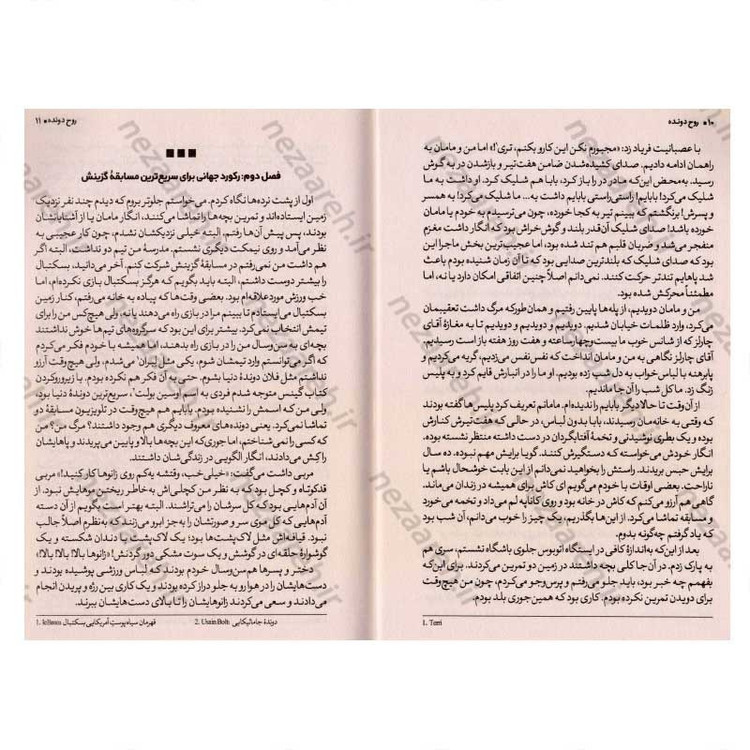 ۱۰ • روح دونده
با عصبانیت فریاد زد: «مجبورم نکن این کارو بکنم، تری۱!» اما من و مامان به
راهمان ادامه دادیم. صدای کشیده‌شدن ضامن هفت‌تیر و بازشدن در به گوش
رسید. به‌محض این‌که مادر در را باز کرد، بابا هم شلیک کرد. او داشت به ما
شلیک می‌کرد! بابایم! راستی‌راستی بابایم داشت به... ما شلیک می‌کرد! به همسر
و پسرش! برنگشتم که ببینم تیر به کجا خورده، چون می‌ترسیدم به خودم یا مامان
خورده باشد! صدای شلیک آن‌قدر بلند و گوش‌خراش بود که انگار داشت مغزم
منفجر می‌شد و ضربان قلبم هم تند شده بود، اما عجیب‌ترین بخش ماجرا این
بود که صدای شلیک که بلندترین صدایی بود که تا آن زمان شنیده بودم باعث
شد پاهایم تندتر حرکت کنند. نمی‌دانم اصلاً چنین اتفاقی امکان دارد یا نه، اما
مطمئناً محرکش شده بود.
من و مامان دویدیم، از پله‌ها پایین رفتیم و همان‌طور که مرگ داشت تعقیبمان
می‌کرد، وارد ظلمات خیابان شدیم. دویدیم و دویدیم و دویدیم تا به مغازهٔ آقای
چارلز که از شانس خوب ما بیست‌وچهارساعته و هفت روز هفته باز است رسیدیم.
آقای چارلز نگاهی به من و مامان انداخت که نفس‌نفس می‌زدیم، گریه می‌کردیم و
پابرهنه با لباس خواب به دل شب زده بودیم. او ما را در انبارش قایم کرد و به پلیس
زنگ زد. ما کل شب را آن جا ماندیم.
از آن‌وقت تا حالا دیگر بابایم را ندیده‌ام. مامانم تعریف کرد پلیس‌ها گفته بودند
که وقتی به خانه‌مان رسیدند، بابا بدون لباس، در حالی که هفت‌تیرش کنارش
بوده و یک بطری نوشیدنی و تخمهٔ آفتابگردان در دست داشته منتظر نشسته بوده،
انگار خودش می‌خواسته که دستگیرش کنند. گویا برایش مهم نبوده. ده سال
برایش حبس بریدند. راستش را بخواهید نمی‌دانم از این بابت خوشحال باشم یا
ناراحت. بعضی اوقات با خودم می‌گویم ای کاش برای همیشه در زندان می‌ماند.
گاهی هم آرزو می‌کنم که کاش در خانه بود و روی کاناپه لم می‌داد و تخمه می‌خورد
و مسابقه تماشا می‌کرد. از این‌ها بگذریم، یک چیز را خوب می‌دانم، آن شب بود
که یاد گرفتم چه‌گونه بدوم.
بعد از این‌که به‌اندازهٔ کافی در ایستگاه اتوبوس جلوی باشگاه نشستم، سری هم
به پارک زدم. در آن‌جا کلی بچه داشتند در زمین دو تمرین می‌کردند. برای این‌که
بفهمم چه خبر بود، باید جلو می‌رفتم و پرس‌وجو می‌کردم، چون من هیچ‌وقت
برای دویدن تمرین نکرده بودم. کاری بود که همین‌جوری بلد بودم.
1. Terri
روح دونده • ۱۱
فصل دوم: رکورد جهانی برای سریع‌ترین مسابقهٔ گزینش
اول از پشت نرده‌ها نگاه کردم. می‌خواستم جلوتر بروم که دیدم چند نفر نزدیک
زمین ایستاده‌اند و تمرین بچه‌ها را تماشا می‌کنند، انگار مامان یا از آشنایانشان
بودند، پس پیش آن‌ها رفتم. البته خیلی نزدیکشان نشدم، چون کار عجیبی به
نظر می‌آمد و روی نیمکت دیگری نشستم. مدرسهٔ من تیم دو نداشت، البته اگر
هم داشت من نمی‌رفتم در مسابقهٔ گزینش شرکت کنم. آخر می‌دانید، بسکتبال
را بیشتر دوست داشتم، البته باید بگویم که هرگز بسکتبال بازی نکرده‌ام، اما
خب ورزش موردعلاقه‌ام بود. بعضی وقت‌ها که پیاده به خانه می‌رفتم، کنار زمین
بسکتبال می‌ایستادم تا ببینم مرا در بازی راه می‌دهند یا نه، ولی هیچ‌کس من را برای
تیمش انتخاب نمی‌کرد. بیشتر برای این بود که سرگروه‌های تیم‌ها خوش نداشتند
بچه‌ای به سن‌وسال من را در بازی راه بدهند. اما همیشه با خودم فکر می‌کردم
که اگر می‌توانستم وارد تیمشان شوم، یکی مثل لبران۱ می‌شدم، ولی هیچ‌وقت آرزو
نداشتم مثل فلان دوندهٔ دنیا بشوم. حتی به آن فکر هم نکرده بودم. با زیروروکردن
کتاب گینس متوجه شدم فردی به اسم اوسین بولت۲، سریع‌ترین دوندهٔ دنیا بود،
ولی من که اسمش را نشنیده بودم. بابایم هم هیچ‌وقت در تلویزیون مسابقهٔ دو
تماشا نمی‌کرد. یعنی دونده‌های معروف دیگری هم وجود داشتند؟ مرگ من؟ من
که کسی را نمی‌شناختم، اما جوری‌که این بچه‌ها بالا و پایین می‌پریدند و پاهایشان
را کش می‌دادند، انگار الگویی در زندگی‌شان داشتند.
مربی داشت می‌گفت: «خیلی خب، وقتشه یه‌کم روی زانوها کار کنید!» مربی
قدکوتاه و کچل بود که به نظر من کچلی‌اش به‌خاطر ریختن موهایش نبود. از
آن آدم‌هایی بود که کل سرشان را می‌تراشند. البته بهتر است بگویم از آن دسته
آدم‌هایی که کل موی سر و صورتشان را به‌جز ابرو می‌زنند که به‌نظرم اصلاً جالب
نبود. قیافه‌اش مثل لاک‌پشت‌ها بود؛ یک لاک‌پشت با دندان شکسته و یک
گوشوارهٔ حلقه‌ای در گوشش و یک سوت مشکی دور گردنش! «زانوها بالا! بالا! بالا!»
دختر و پسرها هم‌سن‌وسال خودم بودند که لباس ورزشی پوشیده بودند و
دست‌هایشان را در هوا رو به جلو دراز کرده بودند و یک کاری بین رژه و پریدن انجام
می‌دادند و سعی می‌کردند زانوهایشان را تا بالای دست‌هایشان ببرند.
1. leBaron قهرمان سیاه‌پوست آمریکایی بسکتبال
2. Usain Bolt: دوندهٔ جامائیکایی
nezaareh.ir